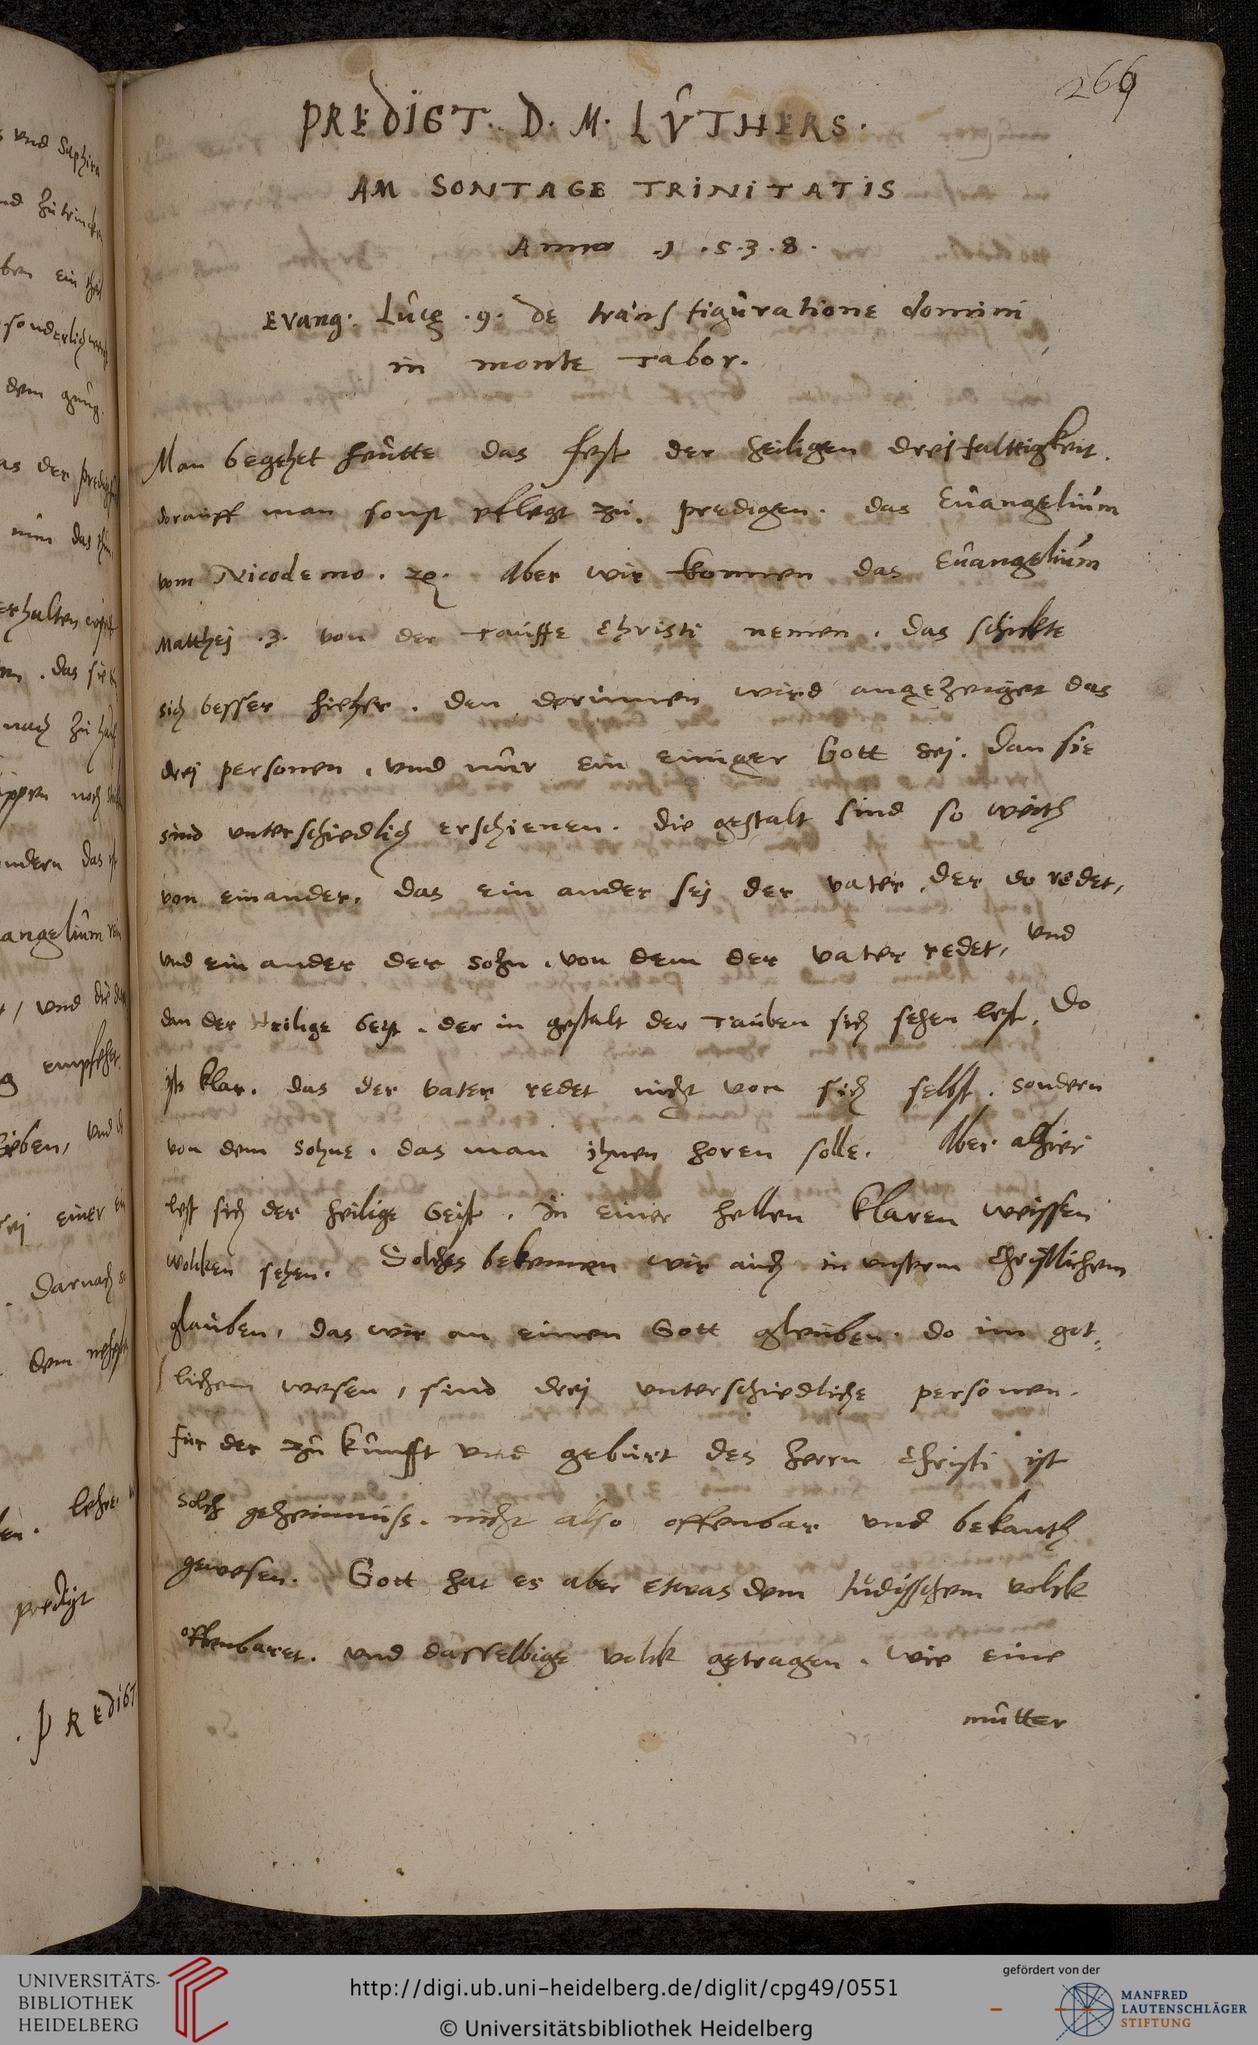 266
PREDIGT. D. M. LÛTHERS.
AM SONTAGE TRINITATIS
Anno .1.5.3.8.
Evang: Lûcę .9. de transfigûratione domini
in monte Tabor.
Man begehet heûtte das fest der heiligen dreifalttigkeit.
dorauff man sonst pflegt zû predigen. das Eûangeliûm
vom Nicodemo. ꝛc. Aber wir konnen das Eûangeliûm
Matthej .3. von der Tauffe Christi nemen. das schickte
sich besser hieher. den dorinnen wird angezeiget das
drej personen, und nûr ein einiger Gott sej. dan sie
sind unterschiedlich erschienen. die gestalt sind so weith
von einander. das ein ander sej der vater, der do redet,
und ein ander der sohn, von dem der vater redet, und
dan der Heilige Geist. der in gestalt der Tauben sich sehen lest. Do
ists klar. das der vater redet nicht von sich selbst. sondern
von dem sohne. das man ihnen horen solle. Aber alhier
lest sich der heilige Geist. in einer hellen klaren weissen
wolcken sehen. Solches bekennen wir auch in unserm Christlichem
glauben, das wir an einen Gott gleuben. do im got,
lichem wesen, sind drej unterschiedliche personen.
für der zû kûnfft und gebûrt des herrn Christi ist
solch geheimnuss. nicht also offenbar und bekanth
gewesen. Gott hat es aber etwas dem Jûdisschem volck
offenbaret. und dasselbige volck getragen. wie eine
mûtter
und Saphira
ein theil
sonderlich
dem
das
erhalten
das sie
nach
das
angeliûm
und die
empfehet
lieben, und
sej einer
Darnach
dem
lehre
predigt
PREDIGT
UNIVERSITÄTS-
BIBLIOTHEK
HEIDELBERG
http://digi.ub.uni-heidelberg.de/diglit/cpg49/0551
© Universitätsbibliothek Heidelberg
gefördert von der
MANFRED
LAUTENSCHLÄGER
STIFTUNG